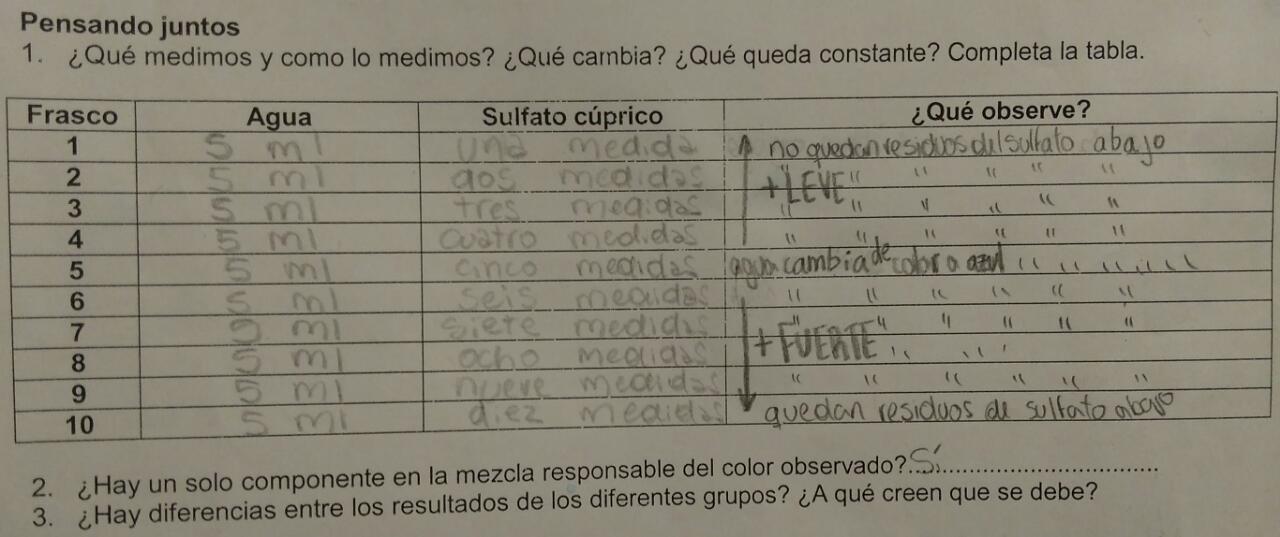 Pensando juntos
1. ¿Qué medimos y como lo medimos? ¿Qué cambia? ¿Qué queda constante? Completa la tabla.
Frasco Agua Sulfato cúprico ¿Qué observe?
1 5 ml una medida no quedan residuos del sulfato abajo
2 5 ml dos medidas + LEVE " " " " " "
3 5 ml tres medidas " " " " " "
4 5 ml cuatro medidas " " " " " "
5 5 ml cinco medidas agua cambia de color a azul " " " " "
6 5 ml seis medidas " " " " " "
7 5 ml siete medidas " " " " " "
8 5 ml ocho medidas + FUERTE " "
9 5 ml nueve medidas " " " " " "
10 5 ml diez medidas quedan residuos de sulfato abajo
2. ¿Hay un solo componente en la mezcla responsable del color observado? Sí
3. ¿Hay diferencias entre los resultados de los diferentes grupos? ¿A qué creen que se debe?